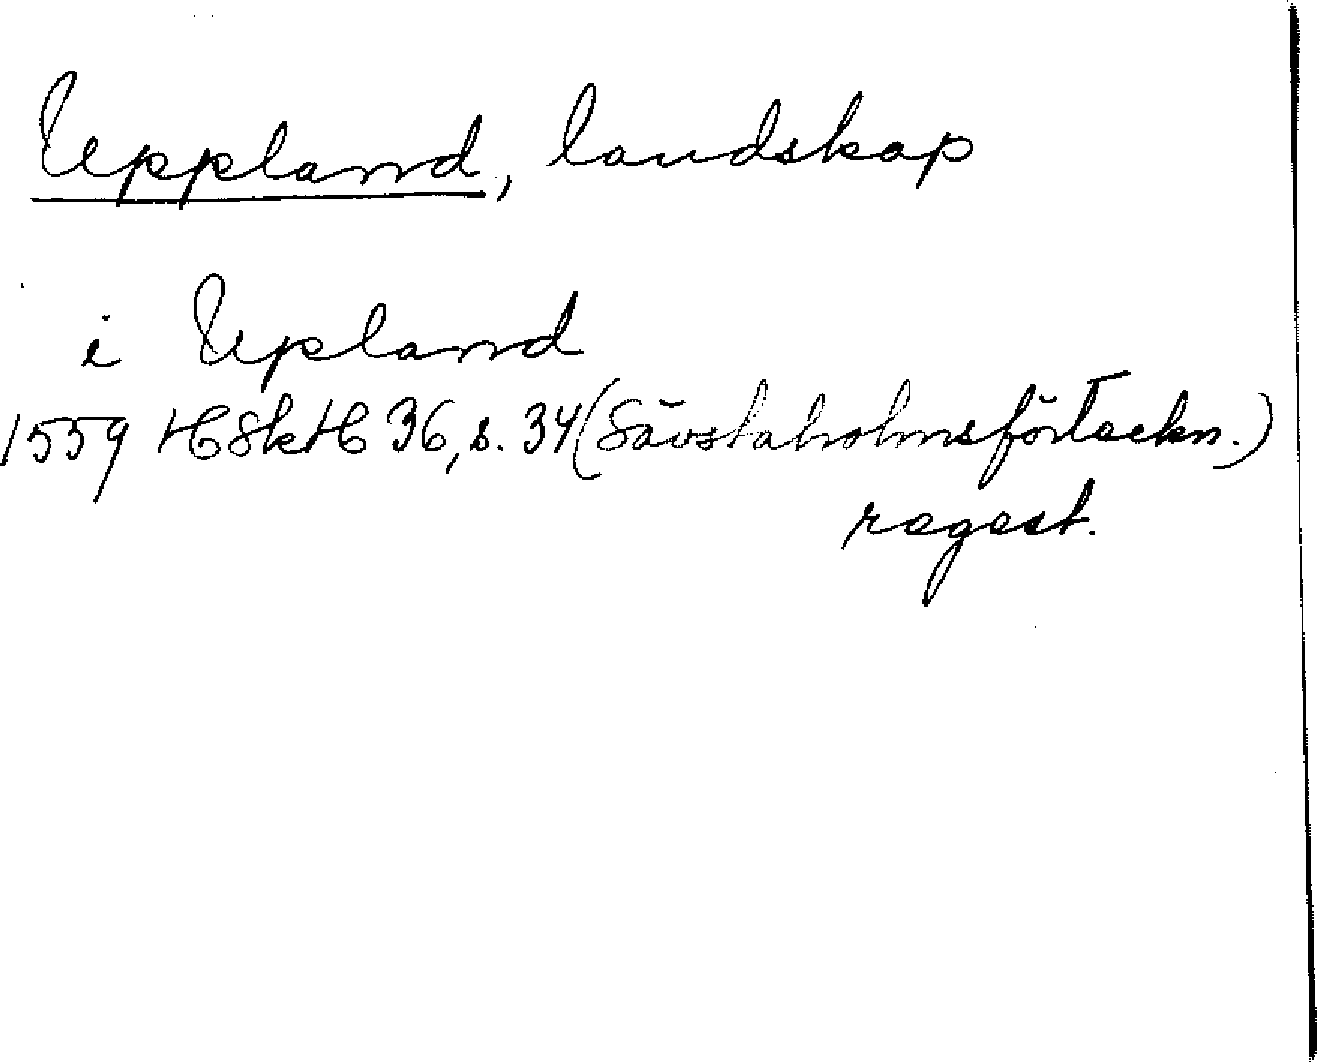 Uppland, landskap
i Upland
1559 HSkH 36, s. 34 (Sävstaholmsförteckn.)
regest.